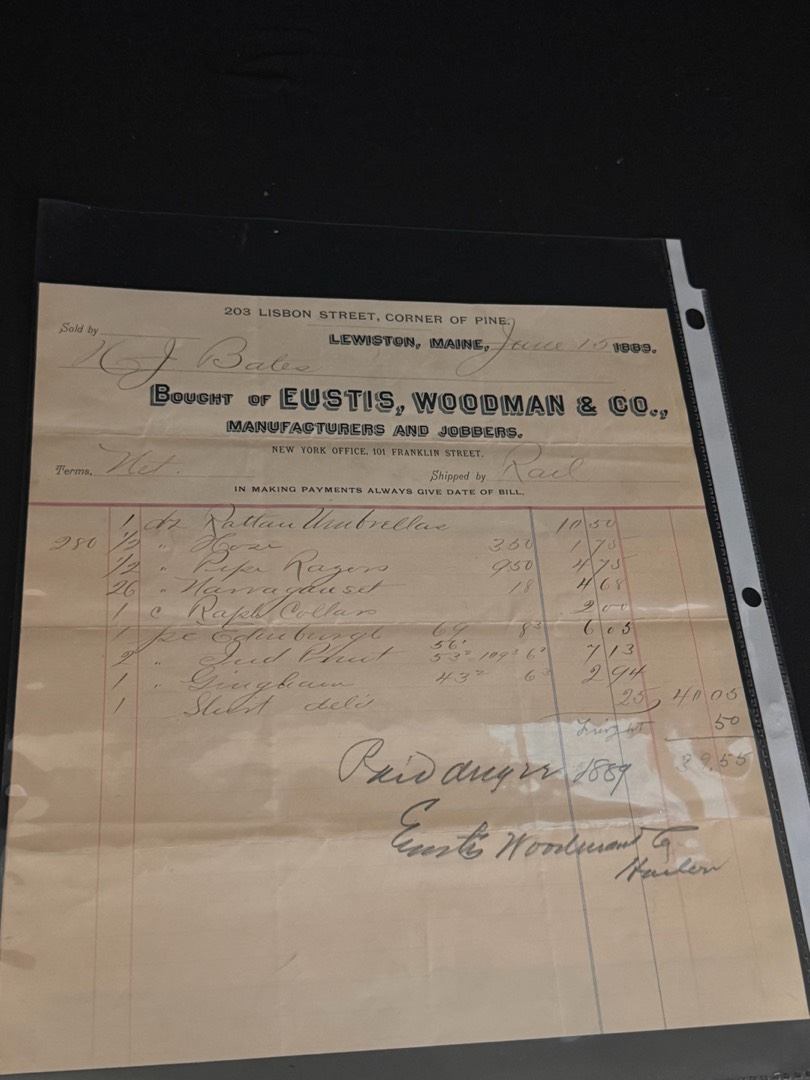 203 LISBON STREET, CORNER OF PINE.
Sold by
LEWISTON, MAINE, June 15 1889.
N J Bates
BOUGHT OF EUSTIS, WOODMAN & CO.,
MANUFACTURERS AND JOBBERS.
NEW YORK OFFICE, 101 FRANKLIN STREET.
Terms. Net. Shipped by Rail
IN MAKING PAYMENTS ALWAYS GIVE DATE OF BILL.
1 dz Rattan Umbrellas 10 50
280 1/2 " Hose 350 1 75
1/2 " Pipe Razors 950 4 75
26 " Narragansett 18 4 68
1 c Collars 2 00
1 pc Edinburgh 69 8¾ 6 05
56¹
2 " Ind Print 53² 109³ 6² 7 13
1 " Gingham 43² 6³ 2 94
1 Short 25 40 05
Freight 50
39.55
Paid 1889
Eustis Woodman & Co